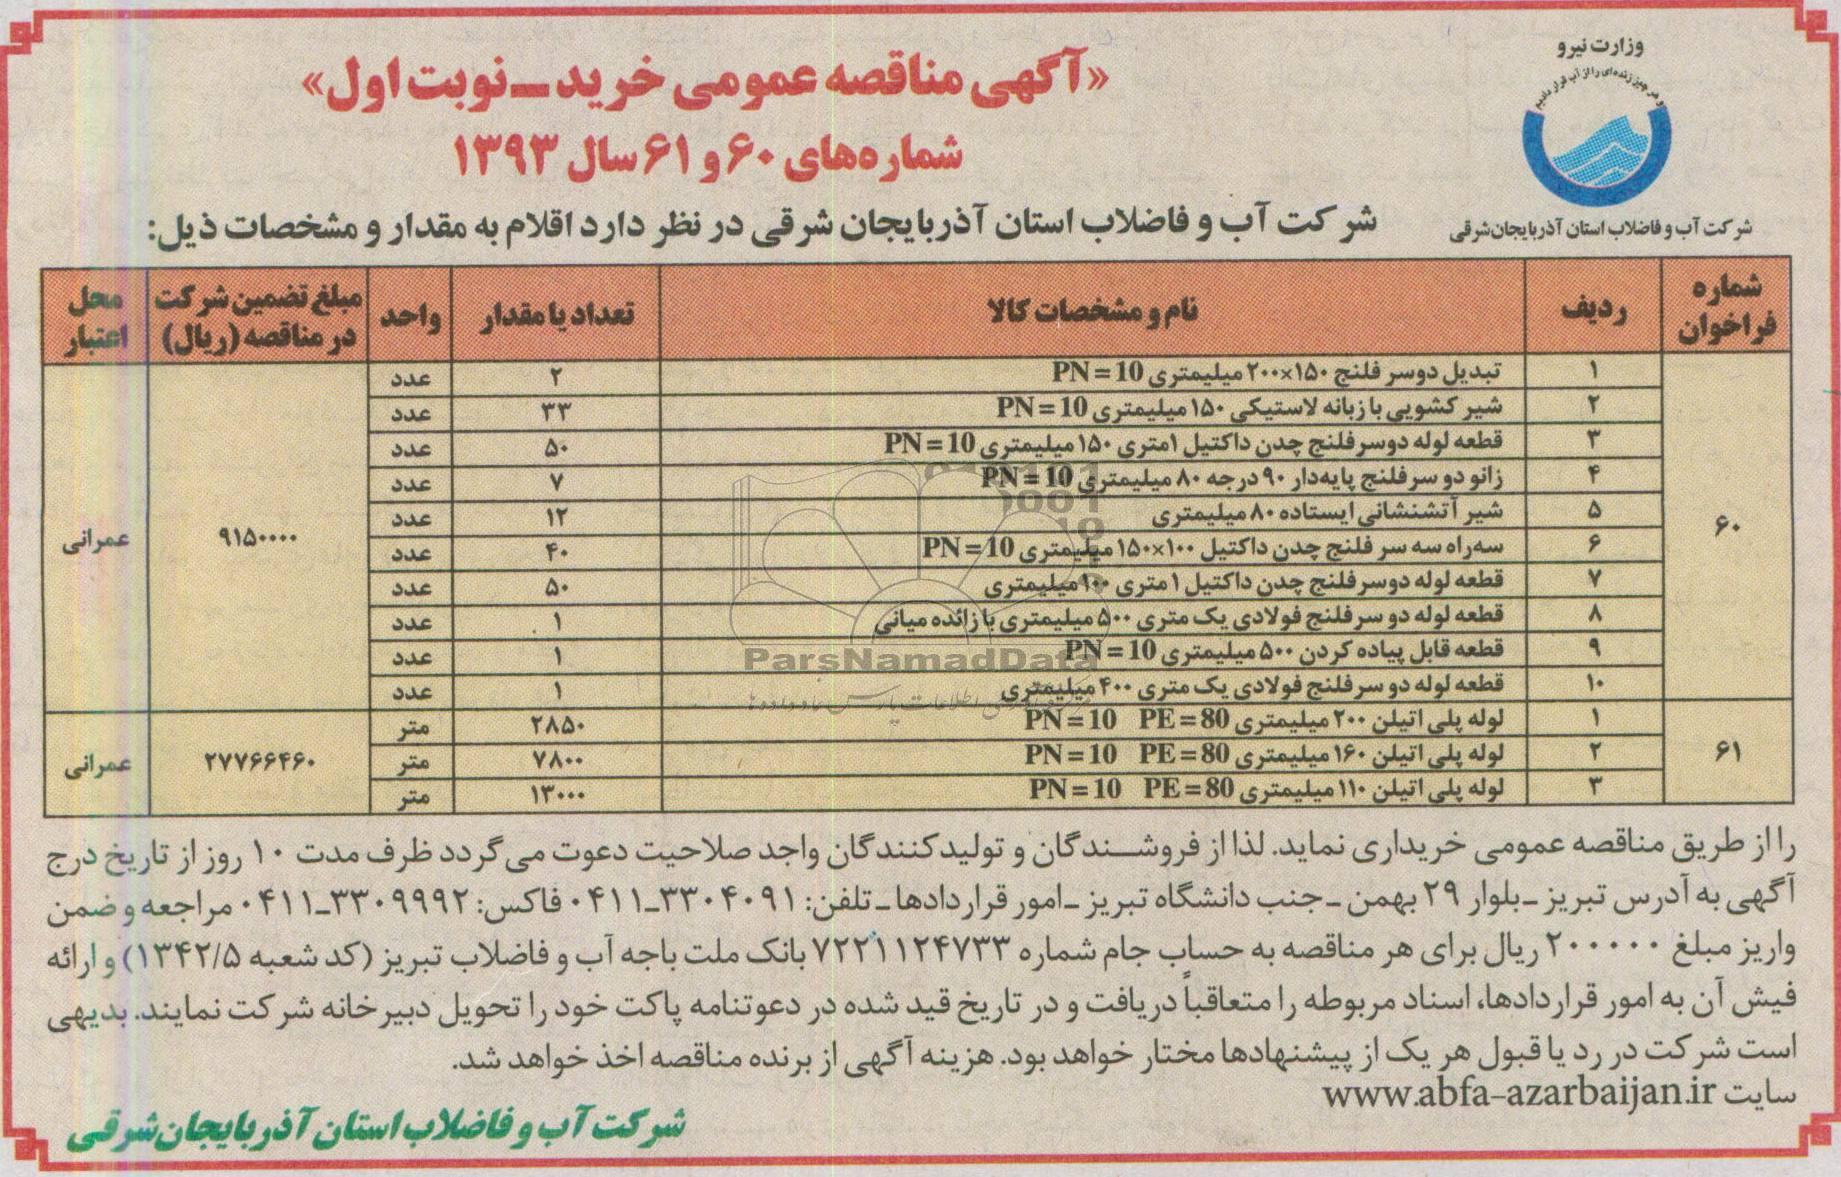 وزارت نیرو
و هر چیز زنده‌ای را از آب قرار دادیم
شرکت آب و فاضلاب استان آذربایجان‌شرقی
«آگهی مناقصه عمومی خرید ـ نوبت اول»
شماره‌های ۶۰ و ۶۱ سال ۱۳۹۳
شرکت آب و فاضلاب استان آذربایجان شرقی در نظر دارد اقلام به مقدار و مشخصات ذیل:
شماره فراخوان | ردیف | نام و مشخصات کالا | تعداد یا مقدار | واحد | مبلغ تضمین شرکت در مناقصه (ریال) | محل اعتبار
۶۰ | ۱ | تبدیل دوسر فلنج ۱۵۰×۲۰۰ میلیمتری PN=10 | ۲ | عدد | ۹۱۵۰۰۰۰ | عمرانی
۲ | شیر کشویی با زبانه لاستیکی ۱۵۰ میلیمتری PN=10 | ۳۳ | عدد
۳ | قطعه لوله دوسرفلنج چدن داکتیل ۱متری ۱۵۰ میلیمتری PN=10 | ۵۰ | عدد
۴ | زانو دو سرفلنج پایه‌دار ۹۰ درجه ۸۰ میلیمتری PN=10 | ۷ | عدد
۵ | شیر آتشنشانی ایستاده ۸۰ میلیمتری | ۱۲ | عدد
۶ | سه‌راه سه سر فلنج چدن داکتیل ۱۰۰×۱۵۰ میلیمتری PN=10 | ۴۰ | عدد
۷ | قطعه لوله دوسرفلنج چدن داکتیل ۱ متری ۱۰۰ میلیمتری | ۵۰ | عدد
۸ | قطعه لوله دو سرفلنج فولادی یک متری ۵۰۰ میلیمتری با زائده میانی | ۱ | عدد
۹ | قطعه قابل پیاده کردن ۵۰۰ میلیمتری PN=10 | ۱ | عدد
۱۰ | قطعه لوله دو سرفلنج فولادی یک متری ۴۰۰ میلیمتری | ۱ | عدد
۶۱ | ۱ | لوله پلی اتیلن ۲۰۰ میلیمتری PN=10 PE=80 | ۲۸۵۰ | متر | ۲۷۷۶۶۴۶۰ | عمرانی
۲ | لوله پلی اتیلن ۱۶۰ میلیمتری PN=10 PE=80 | ۷۸۰۰ | متر
۳ | لوله پلی اتیلن ۱۱۰ میلیمتری PN=10 PE=80 | ۱۳۰۰۰ | متر
ParsNamadData
را از طریق مناقصه عمومی خریداری نماید. لذا از فروشندگان و تولیدکنندگان واجد صلاحیت دعوت می‌گردد ظرف مدت ۱۰ روز از تاریخ درج
آگهی به آدرس تبریز ـ بلوار ۲۹ بهمن ـ جنب دانشگاه تبریز ـ امور قراردادها ـ تلفن: ۳۳۰۴۰۹۱ـ۰۴۱۱ فاکس: ۳۳۰۹۹۹۲ـ۰۴۱۱ مراجعه و ضمن
واریز مبلغ ۲۰۰۰۰۰ ریال برای هر مناقصه به حساب جام شماره ۷۲۲۱۱۲۴۷۳۳ بانک ملت باجه آب و فاضلاب تبریز (کد شعبه ۱۳۴۲/۵) و ارائه
فیش آن به امور قراردادها، اسناد مربوطه را متعاقباً دریافت و در تاریخ قید شده در دعوتنامه پاکت خود را تحویل دبیرخانه شرکت نمایند. بدیهی
است شرکت در رد یا قبول هر یک از پیشنهادها مختار خواهد بود. هزینه آگهی از برنده مناقصه اخذ خواهد شد.
سایت www.abfa-azarbaijan.ir
شرکت آب و فاضلاب استان آذربایجان‌شرقی